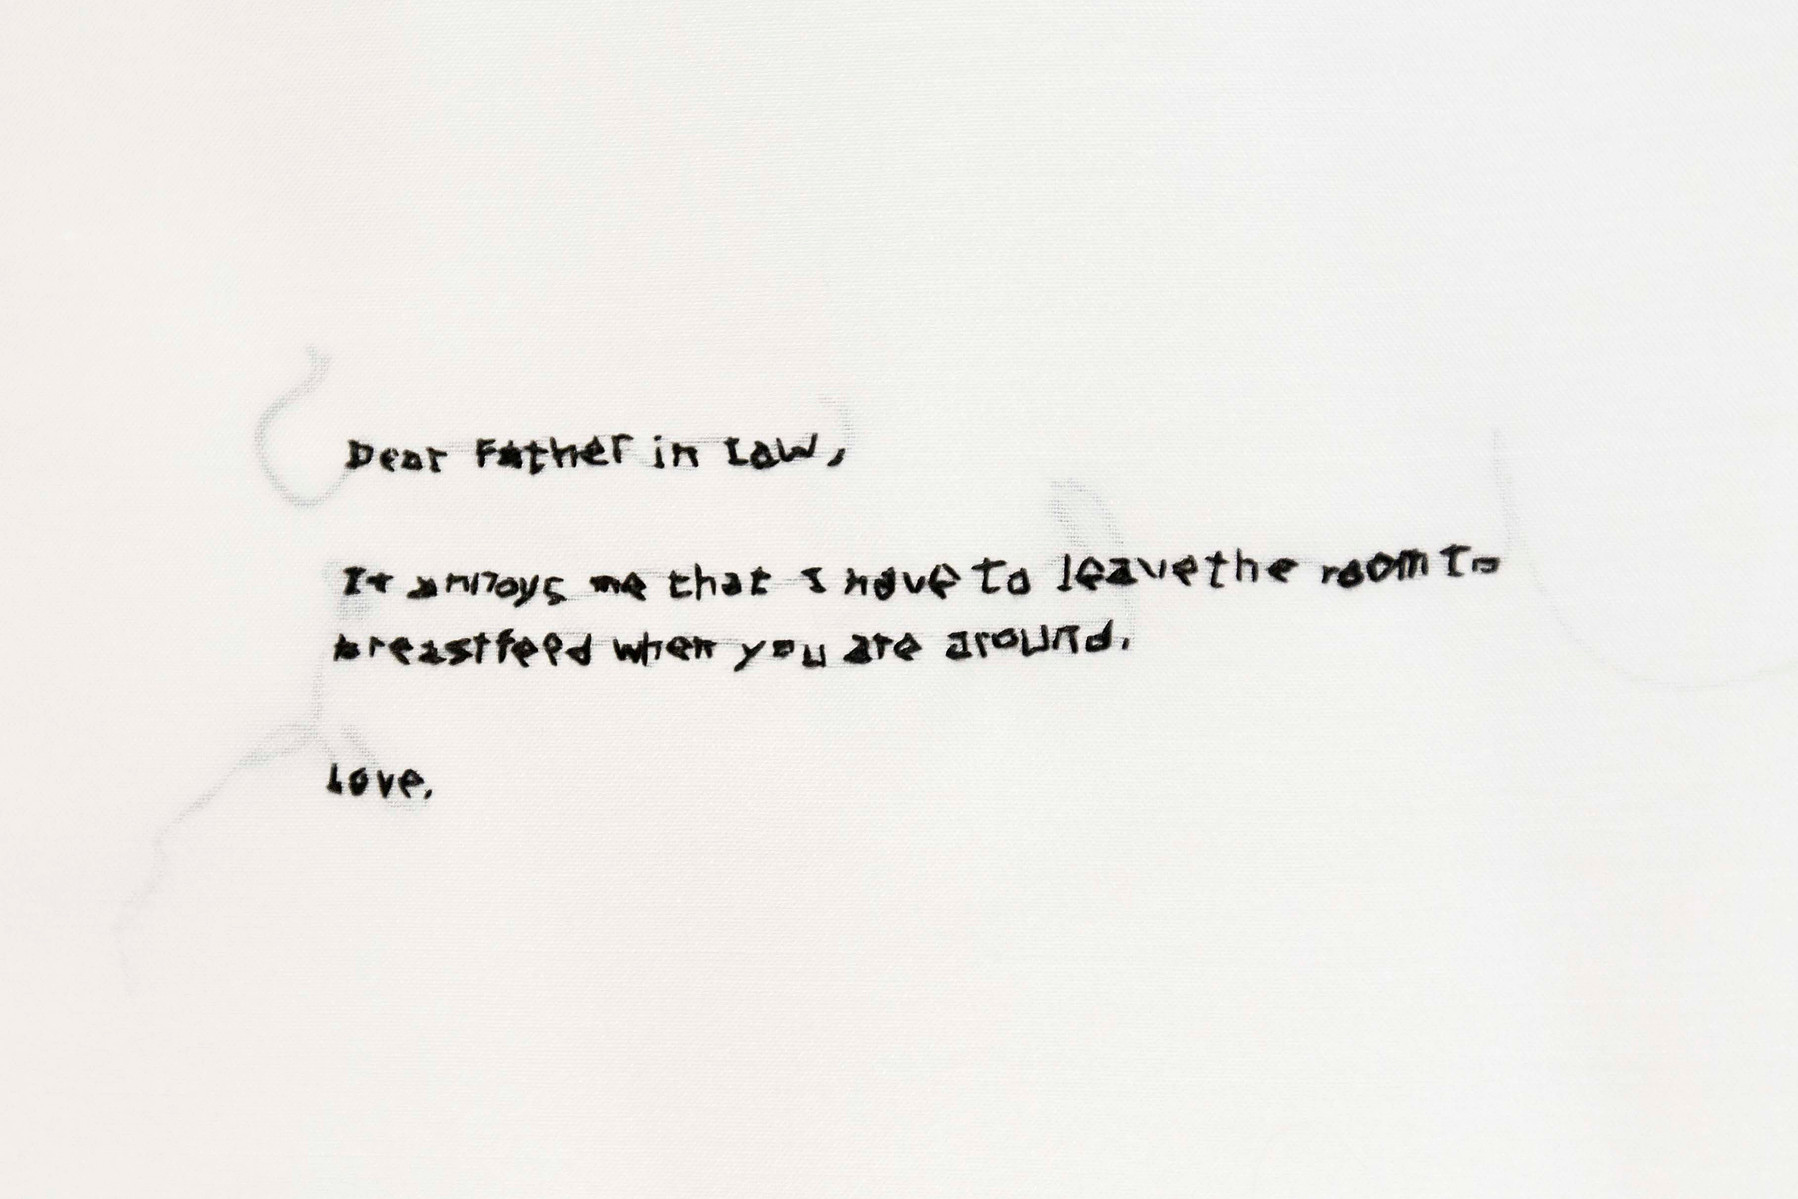 Dear Father in Law,
It annoys me that I have to leave the room to
breastfeed when you are around.
Love,